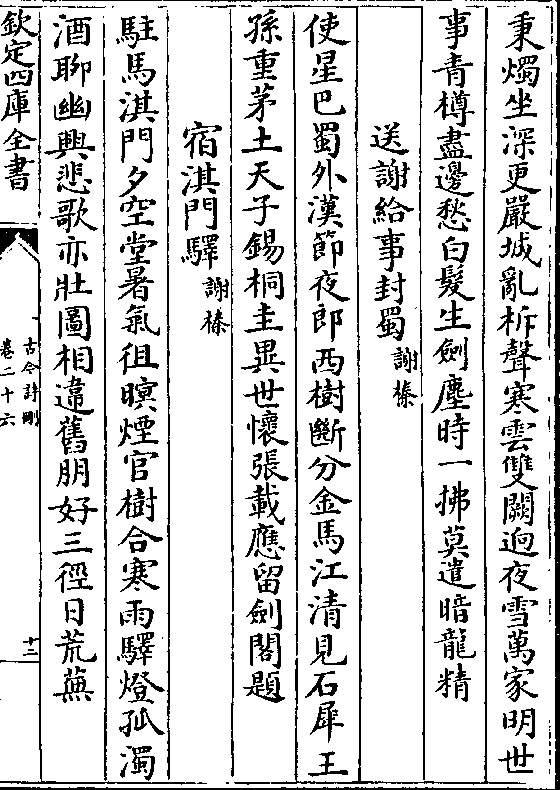 秉燭坐深更嚴城亂柝聲寒雲雙闕逈夜雪萬家明世
事青樽盡邊愁白髮生劍塵時一拂莫遣暗龍精
送謝給事封蜀謝榛
使星巴蜀外漢節夜郎西樹斷分金馬江清見石犀王
孫重茅土天子錫桐圭異世懷張載應留劍閣題
宿淇門驛謝榛
駐馬淇門夕空堂暑氣徂暝煙官樹合寒雨驛燈孤濁
酒聊幽興悲歌亦壯圖相違舊朋好三徑日荒蕪
欽定四庫全書
古今詩刪
卷二十六
十二